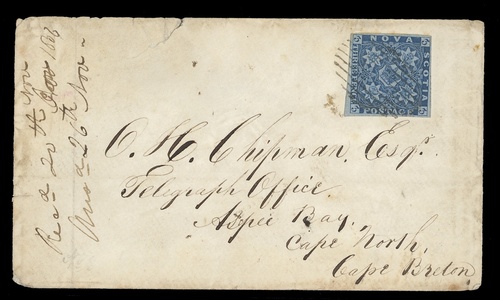 NOVA
SCOTIA
POSTAGE
THREE PENCE
O. H. Chipman, Esqr.
Telegraph Office
Aspee Bay,
Cape North,
Cape Breton
Recd 20th Nov
Ansd 26th Nov